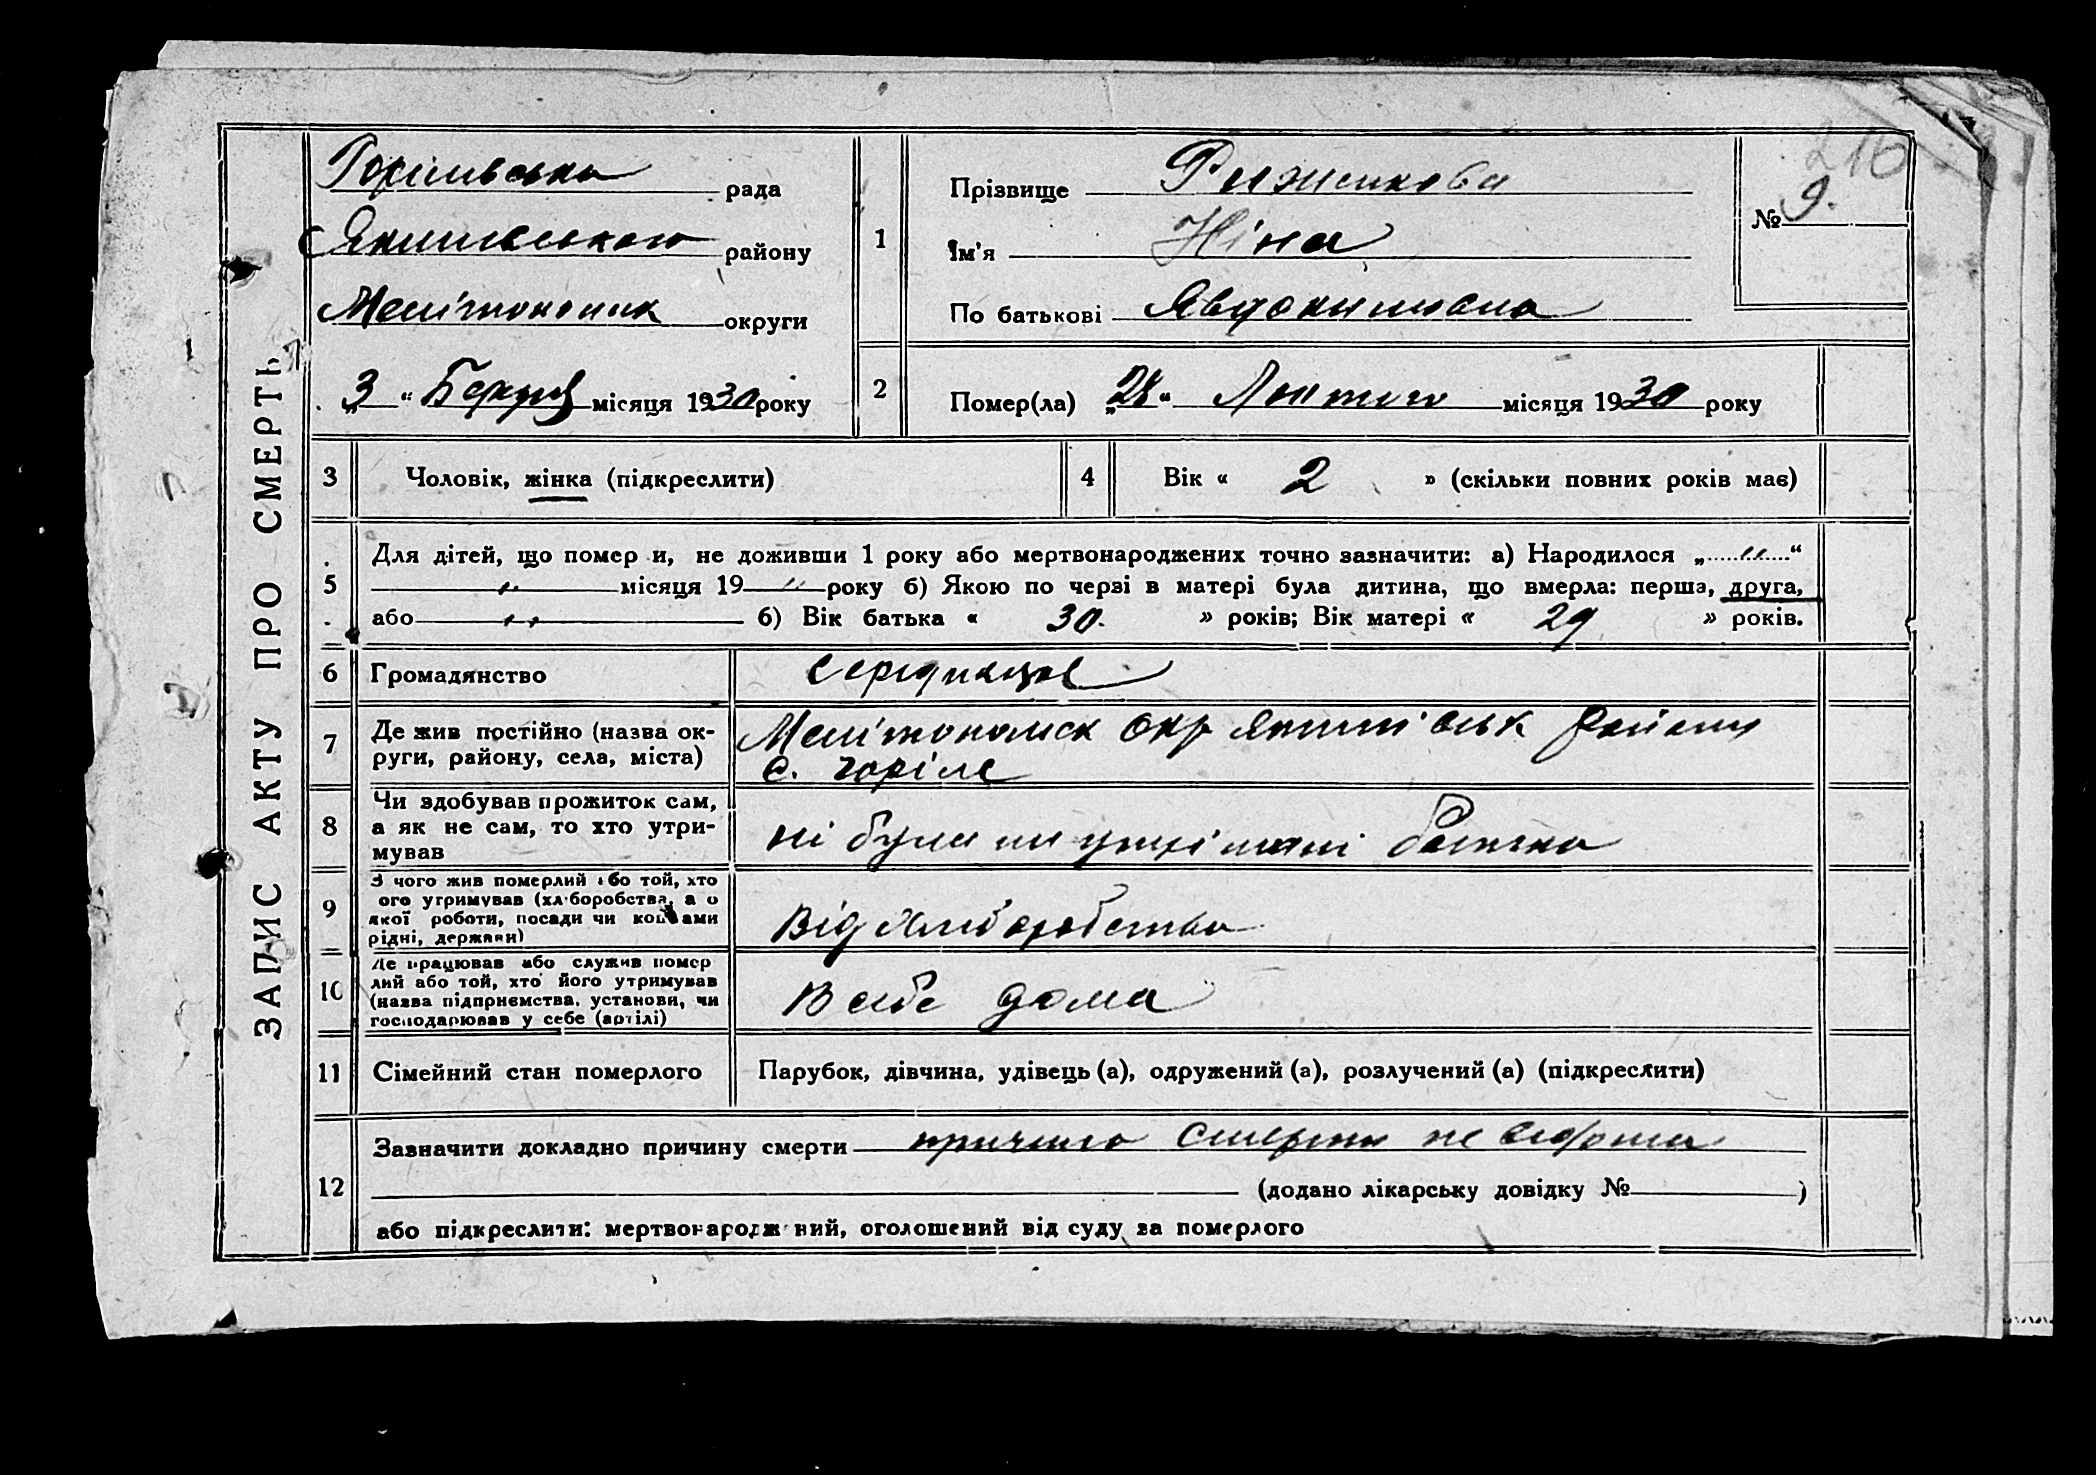 ЗАПИС АКТУ ПРО СМЕРТЬ
Горілівська рада
Якимівського району
Мелітопольск округи
„3“ Березня місяця 1930 року
216
№ 9.
1
Прізвище Рижикова
Ім'я Ніна
По батькові Явдокимовна
2
Помер(ла) „28“ Лютого місяця 1930 року
3 Чоловік, жінка (підкреслити)
4 Вік « 2 » (скільки повних років має)
5
Для дітей, що помер и, не доживши 1 року або мертвонароджених точно зазначити: а) Народилося „ 〃 “
〃 місяця 19 〃 року б) Якою по черзі в матері була дитина, що вмерла: перша, друга,
або 〃 б) Вік батька « 30. » років; Вік матері « 29 » років.
6 Громадянство
7
Де жив постійно (назва ок-
руги, району, села, міста)
Мелітопольск окр Якимівськ району
с. Горіле
8
Чи здобував прожиток сам,
а як не сам, то хто утри-
мував
ні була на утрімані батька
9
З чого жив померлий або той, хто
ого утримував (хліборобства, а о
якої роботи, посади чи коштами
рідні, держави)
Від хліборобства
10
Де працював або служив помер
лий або той, хто його утримував
(назва підприємства, установи, чи
господарював у себе (артілі)
В себе дома
11 Сімейний стан померлого
Парубок, дівчина, удівець (а), одружений (а), розлучений (а) (підкреслити)
12
Зазначити докладно причину смерти причина смерти не відома
(додано лікарську довідку № )
або підкреслити: мертвонароджений, оголошений від суду за померлого